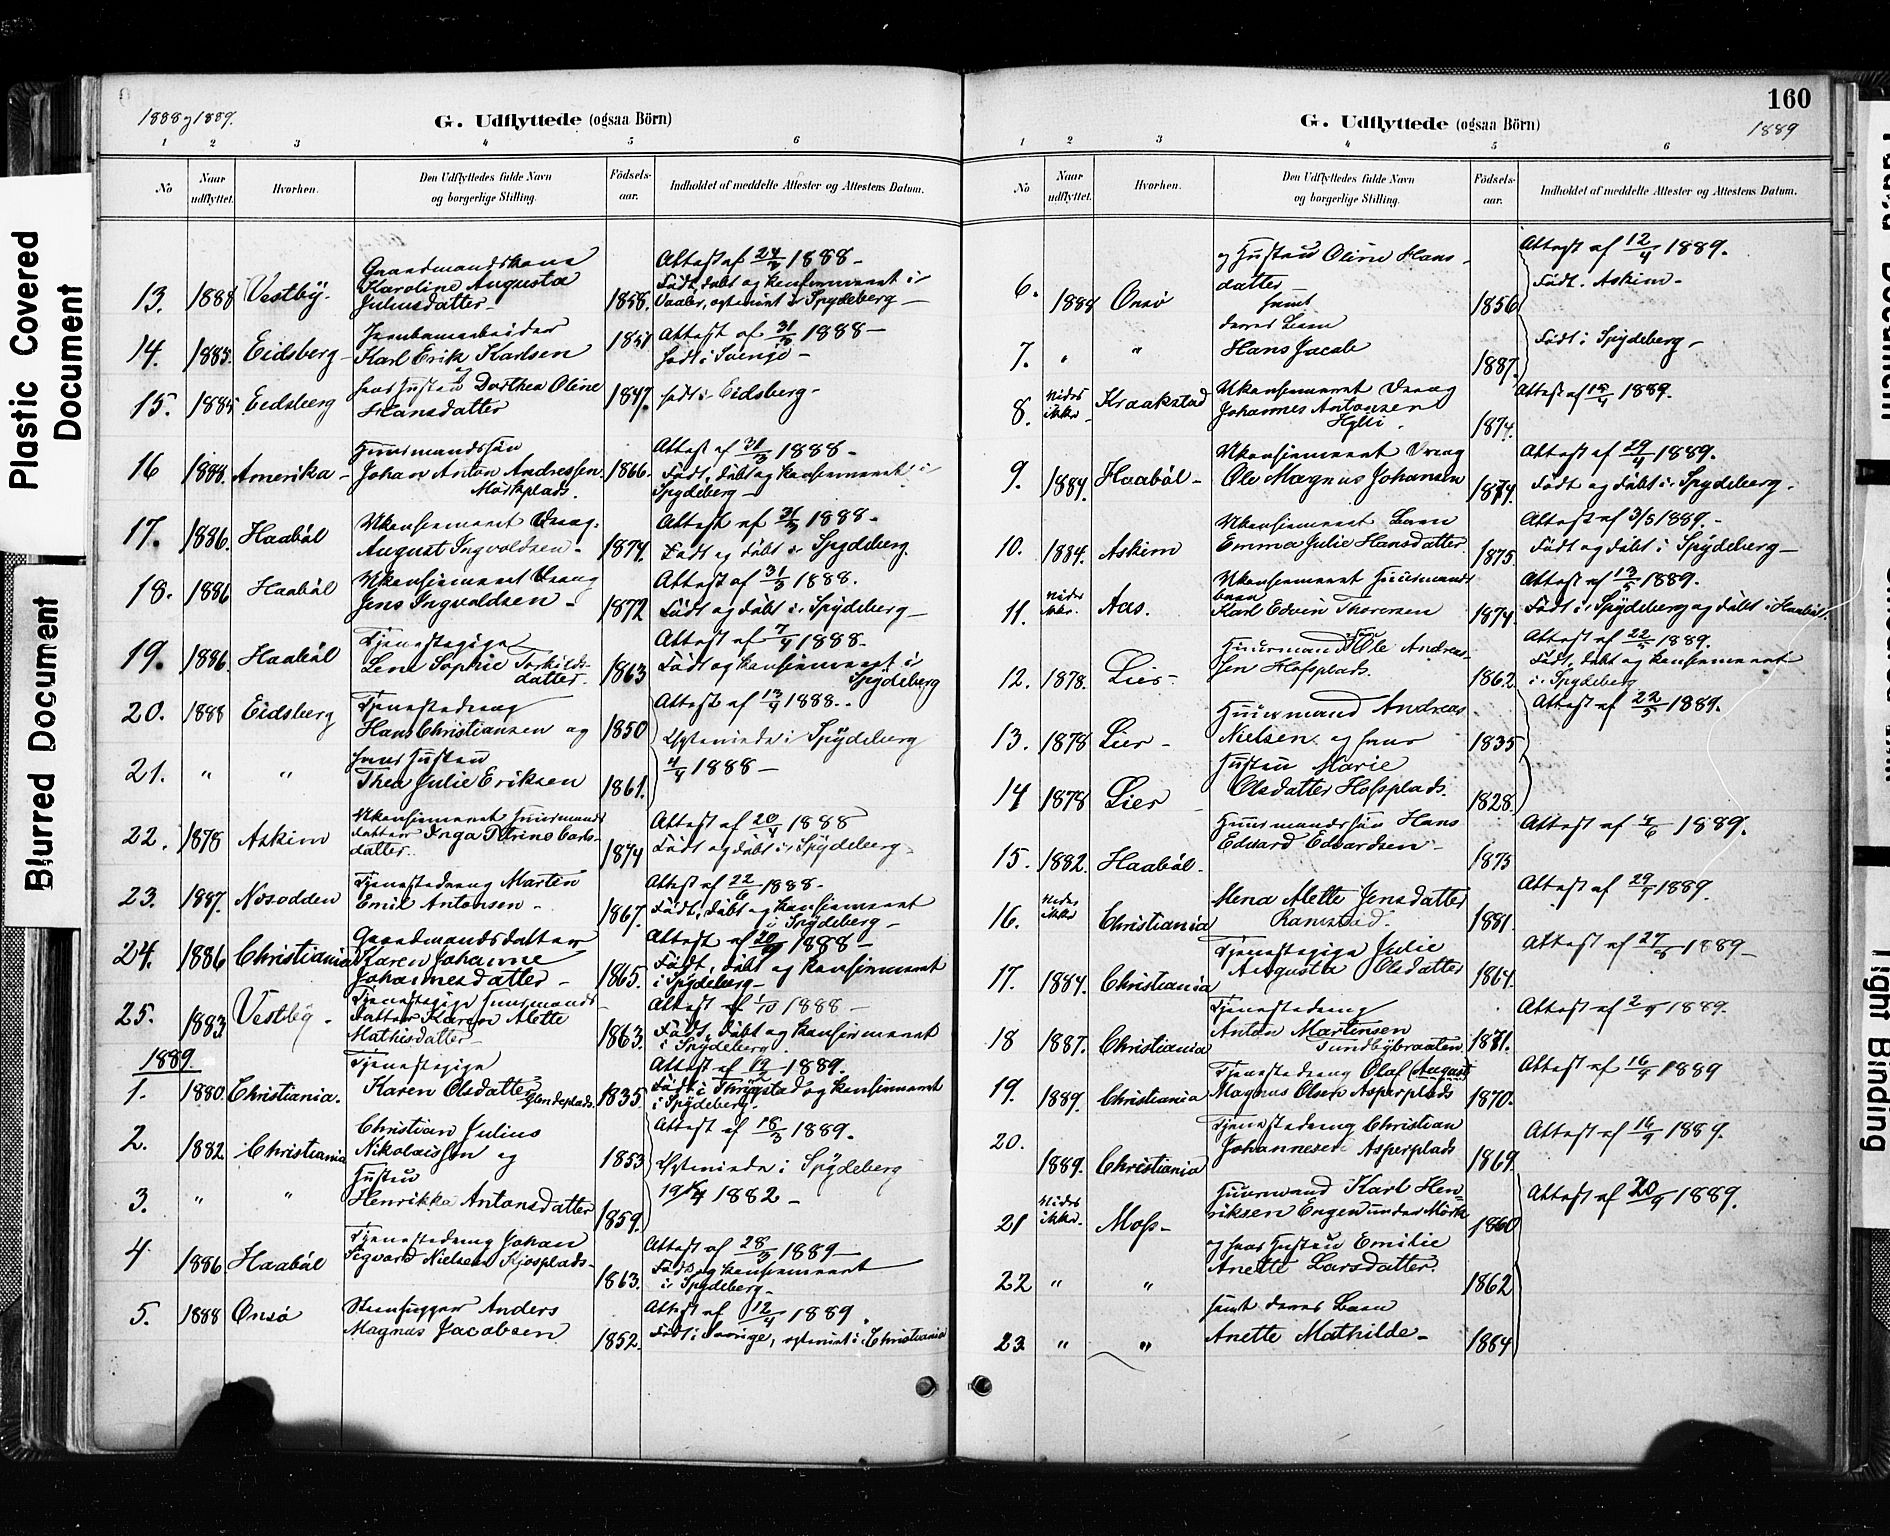 1888 og 1889.
G. Udflyttede (ogsaa Börn)
1 2 3 4 5 6
No
Naar udflyttet.
Hvorhen.
Den Udflyttedes fulde Navn og borgerlige Stilling.
Födsels-aar.
Indholdet af meddelte Attester og Attestens Datum.
13. 1888 Vestby. Gaardmandskone Karoline Augusta Juliusdatter 1858. Attest af 1888 - Födt, döbt og konfirmeret i Vaaler, ægteviet i Spydeberg
14. 1885. Eidsberg Jernbanearbeider Karl Erik Karlsen og 1851 Attest af 31/3 1888 - födt i Sverige -
15. 1885 Eidsberg hans Hustru Dorthea Oline Hansdatter 1847. födt i Eidsberg -
16 1888. Amerika - Huusmandssön Johan Anton Andressen Mörkplads. 1866. Attest af 31/3 1888 - Födt, döbt og konfirmeret i Spydeberg -
17. 1886. Haaböl Ukonfirmeret Dreng. August Ingvoldsen - 1874. Attest af 31/3 1888 - Födt og döbt i Spydeberg.
18. 1886 Haaböl Ukonfirmeret Dreng Jens Ingvoldsen - 1872 Attest af 31/3 1888. Födt og döbt i Spydeberg -
19. 1886. Haaböl Tjenestepige Lene Sophie Torkildsdatter. 1863 Attest af 7/4 1888. Födt og konfirmeret i Spydeberg
20. 1888 Eidsberg Tjenestedreng Hans Christiansen og 1850 Attest af 13/4 1888. Ægteviede i Spydeberg
21. " " hans Hustru Thea Julie Eriksen 1861. 4/4 1888 -
22. 1878 Askim Ukonfirmeret Huusmandsdatter Inga Petrine Carlsdatter. 1874 Attest af 20/4 1888 Födt og döbt i Spydeberg -
23. 1887. Nesodden Tjenestedreng Marten Emil Antonsen - 1867. Attest af 22/6 1888 - Födt, döbt og konfirmeret i Spydeberg -
24. 1886 Christiania Gaardmandsdatter Karen Johanne Johannesdatter - 1865. Attest af 1888 - Födt, döbt og konfirmeret i Spydeberg -
25. 1883 Vestby - Tjenestepige Huusmandsdatter Karen Alette Mathisdatter - 1863. Attest af 1/10 1888 - Födt, döbt og konfirmeret i Spydeberg.
1889.
1. 1880. Christiania. Tjenestepige Karen Olsdatter 1835 Attest af 1889. Födt i Thrygstad og konfirmeret i Spydeberg.
2. 1882. Christiania Christian Julius Nikolaissen og 1853 Attest af 18/3 1889. Ægteviede i Spydeberg
3. " " Hustru Henrikka Antonsdatter 1859. 1882 -
4. 1886. Haaböl Tjenestedreng Johan Sigvard Nielsen Kjosplads - 1863. Attest af 28/3 1889 - Födt og konfirmeret i Spydeberg -
5. 1888 Onsö Steenhugger Anders Magnus Jacobsen 1852. Attest af 12/4 1889. Födt i Sverige, ægteviet i Christiania
160
1889
G. Udflyttede (ogsaa Börn)
1 2 3 4 5 6
No
Naar udflyttet.
Hvorhen.
Den Udflyttedes fulde Navn og borgerlige Stilling.
Födsels-aar.
Indholdet af meddelte Attester og Attestens Datum.
6. 1888 Onsö og Hustru Oline Hansdatter - samt 1856 Attest af 12/4 1889. Födt. Askim -
7. " " deres Barn Hans Jacob 1887. Födt i Spydeberg -
8. vides ikke - Kraakstad Ukonfirmeret Dreng Johannes Antonsen Hylli. 1874. Attest af 1889.
9. 1884. Haaböl - Ukonfirmeret Dreng Ole Magnus Johansen 1874. Attest af 29/4 1889. Födt og döbt i Spydeberg.
10. 1884. Askim Ukonfirmeret Barn Emma Julie Hansdatter 1875. Attest af 3/5 1889. - Födt og döbt i Spydeberg -
11. vides ikke. Aas. Ukonfirmeret Huusmandsbarn Karl Edvin Thoresen 1874. Attest af 13/5 1889. Födt i Spydeberg og döbt i Haaböl.
12. 1878. Lier - Huusmandssön Ole Andreassen Hofsplads. 1862. Attest af 22/5 1889. Födt, döbt og konfirmeret i Spydeberg
13. 1878 Lier - Huusmand Andreas Nielsen og hans 1835 Attest af 22/5 1889.
14 1878 Lier Hustru Marie Olsdatter Hofsplads. 1828.
15. 1882. Haaböl. Huusmandssön Hans Edvard Edvardsen - 1875 Attest af 1889.
16. vides ikke Christiania Mena Alette Jensdatter Ramstad. 1881. Attest af 1889.
17. 1884. Christiania Tjenestepige Julie Augusta Olsdatter 1864. Attest af 1889 -
18 1887. Christiania Tjenestedreng Anton Martinsen Tundbybraaten 1871. Attest af 1889.
19. 1889. Christiania Tjenestedreng Olaf (August) Magnus Olsen Asperplads 1870. Attest af 16/9 1889
20. 1889. Christiania Tjenestedreng Christian Johannesen Asperplads 1869. Attest af 16/9 1889.
21 vides ikke. Moss - Huusmand Karl Henriksen Engen under Mörk 1860 Attest af 20/9 1889.
22 " " og hans Hustru Emilie Anette Larsdatter. 1862
23 " " samt deres Barn Anette Mathilde - 1884
Plastic Covered
Document
Blurred Document
Tight Binding